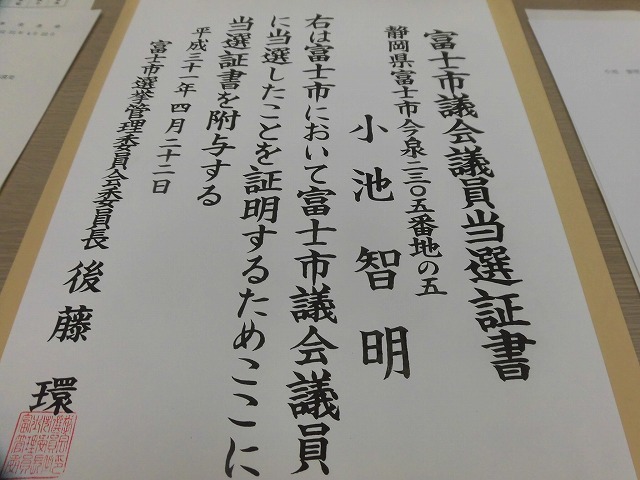 富士市議会議員当選証書
静岡県富士市今泉二三〇五番地の五
小池智明
右は富士市において富士市議会議員
に当選したことを証明するためここに
当選証書を附与する
平成三十一年四月二十二日
富士市選挙管理委員会委員長 後藤環